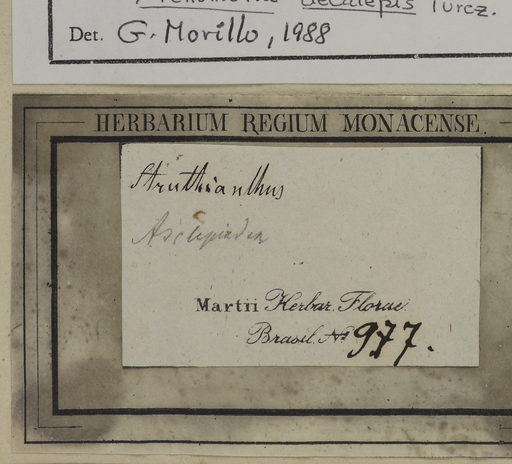 decalepis Turcz.
Det. G. Morillo, 1988
HERBARIUM REGIUM MONACENSE.
Struthianthus
Asclepiadea
Martii Herbar. Florae
Brasil. No 977.